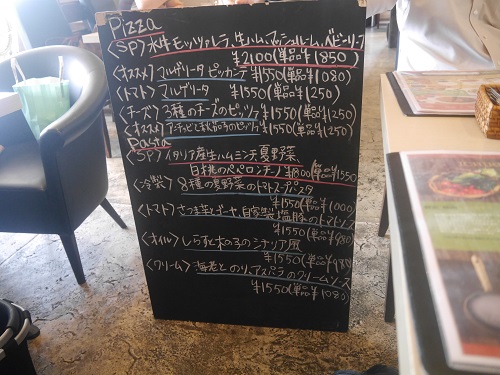 Pizza
〈SP〉水牛モッツァレラ、生ハム、マッシュルーム、ベビーリーフ
¥2100(単品¥1850)
〈オススメ〉マルゲリータ ピッカンテ ¥1550(単品¥1080)
〈トマト〉マルゲリータ ¥1550(単品¥1250)
〈チーズ〉3種のチーズのピッツァ ¥1550(単品¥1250)
〈オススメ〉アンチョビと秋茄子のピッツァ ¥1550(単品¥1250)
Pasta
〈SP〉イタリア産生ハムミンチ夏野菜、
白桃のペペロンチーノ ¥1800(単品¥1550)
〈冷製〉8種の夏野菜のトマトスープパスタ
¥1550(単品¥1000)
〈トマト〉さつま芋とゴーヤ、自家製塩豚のトマトソース
¥1550(単品¥980)
〈オイル〉しらすと木の子のシチリア風
¥1550(単品¥980)
〈クリーム〉海老とのり、アスパラのクリームソース
¥1550(単品¥1080)